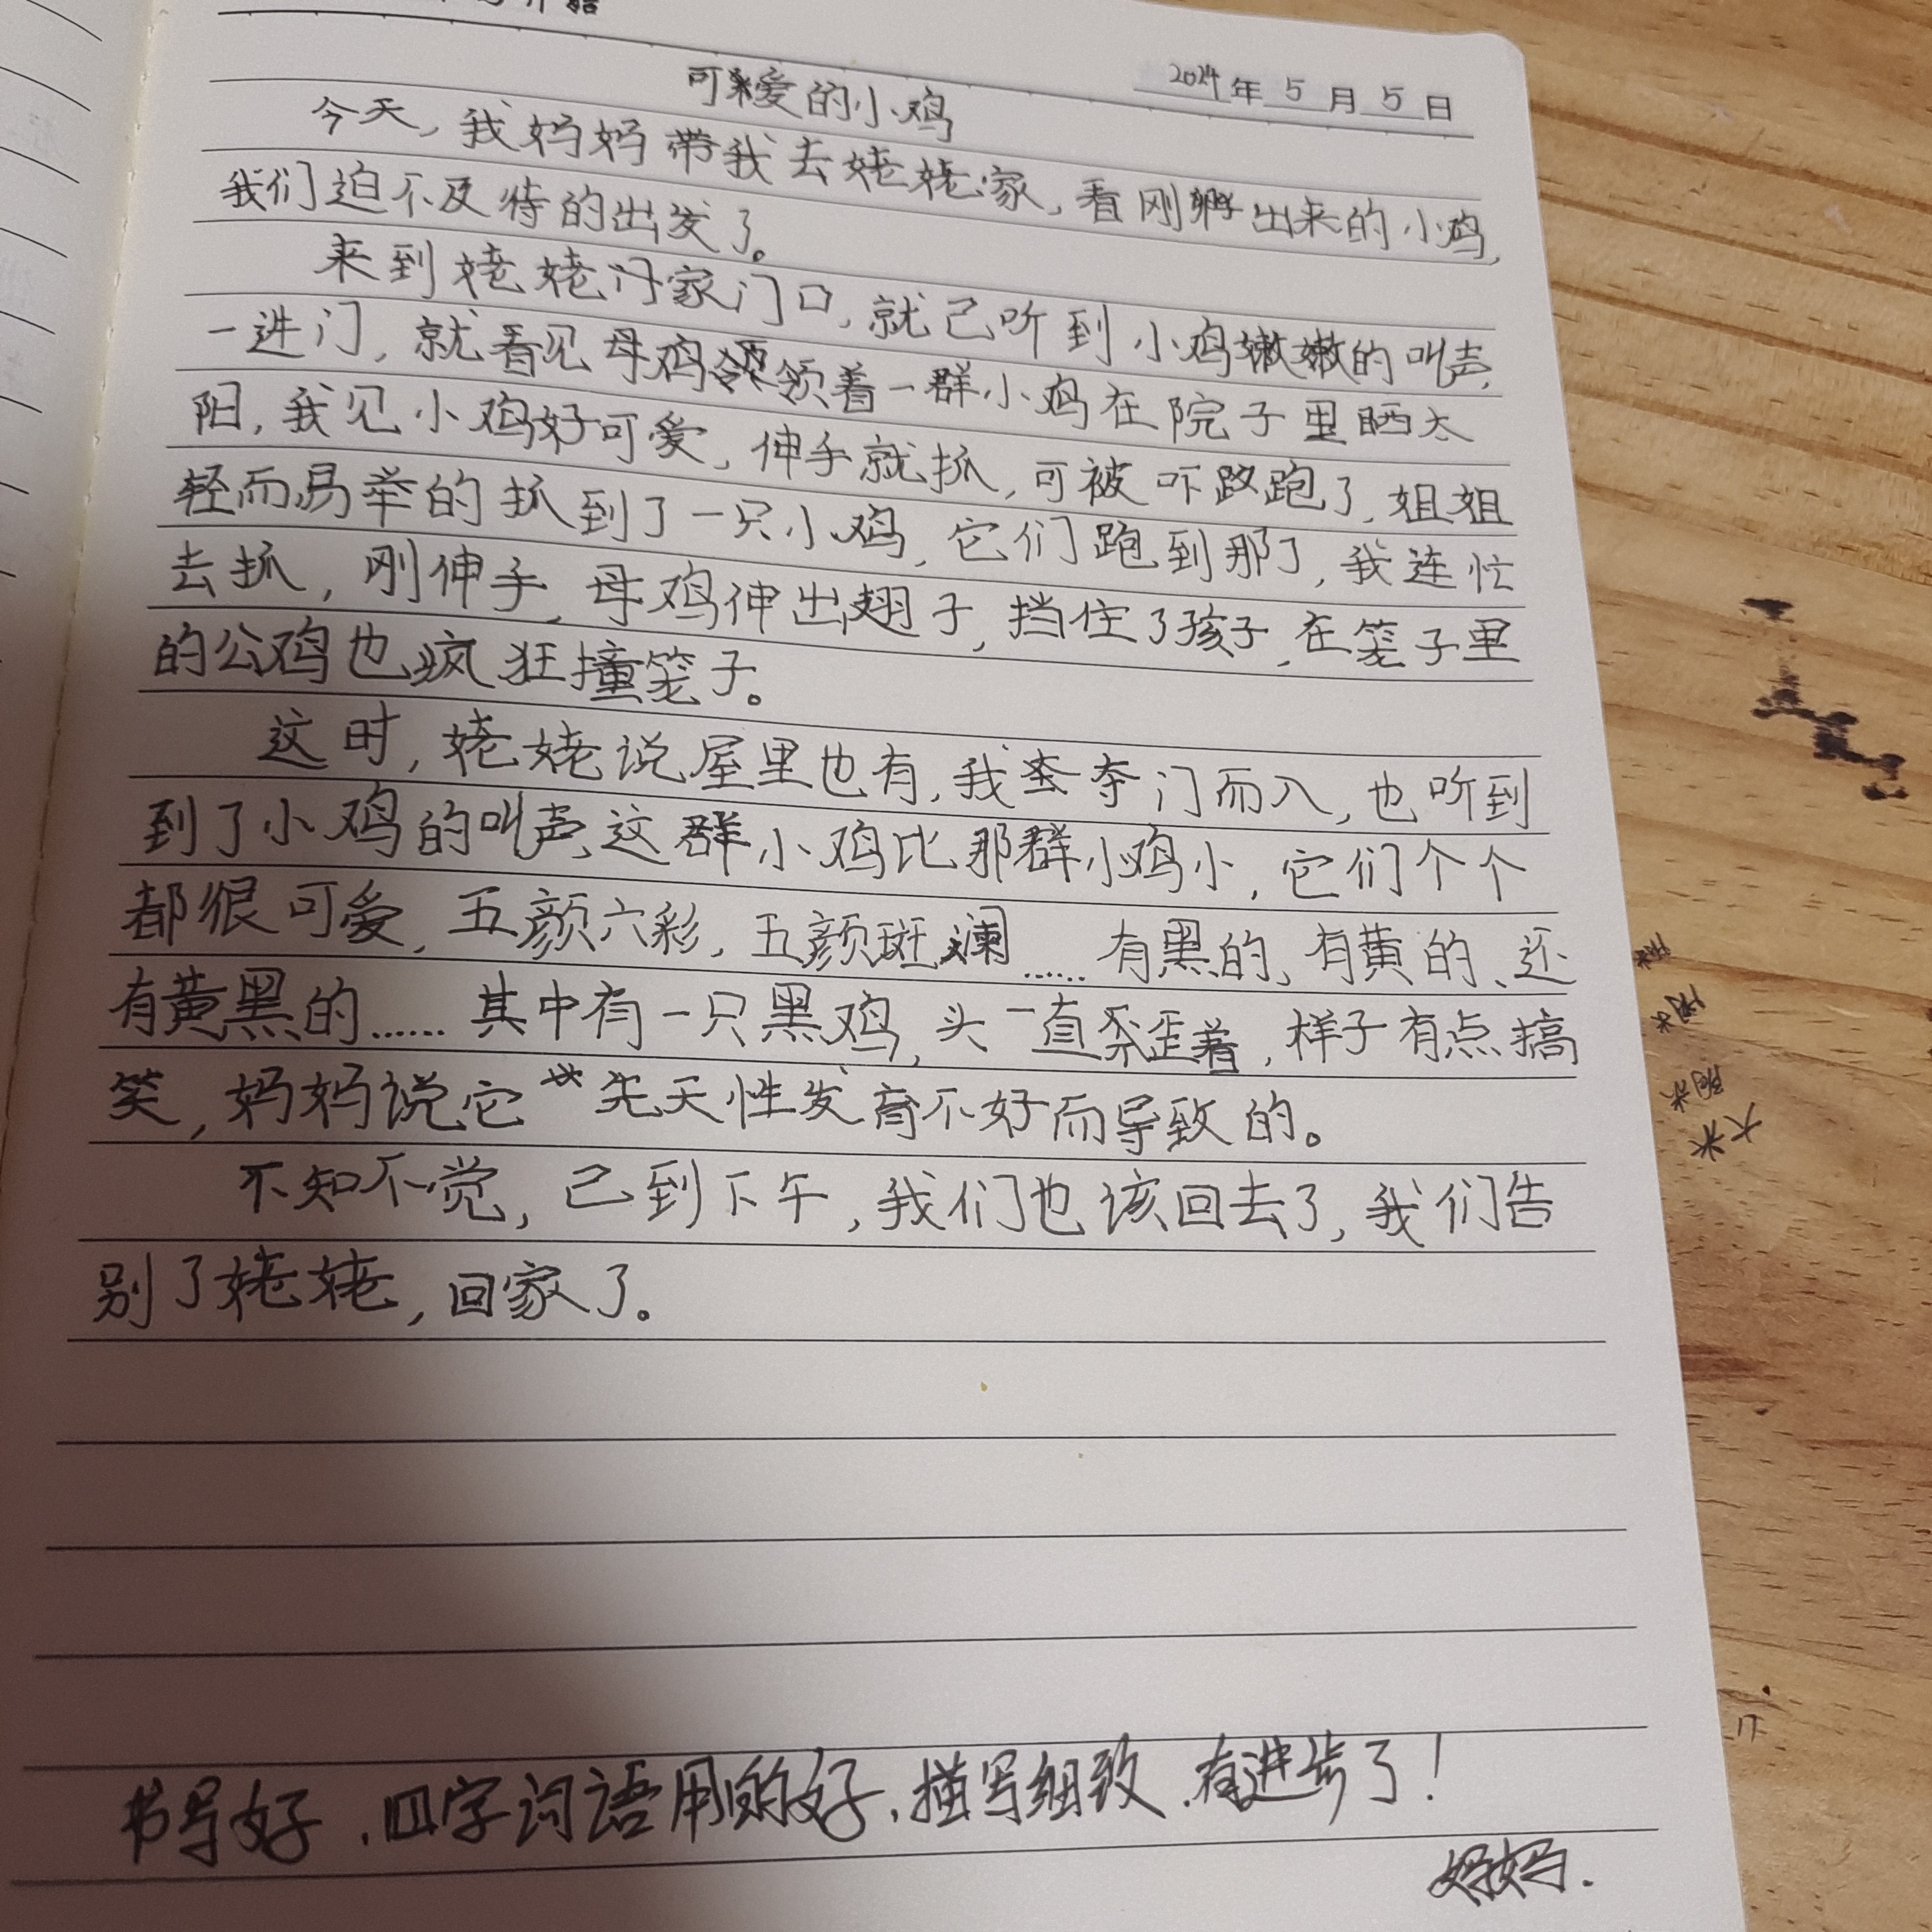 2024年5月5日
可爱的小鸡
今天,我妈妈带我去姥姥家,看刚孵出来的小鸡,
我们迫不及待的出发了。
来到姥姥家门口,就己听到小鸡嫩嫩的叫声,
一进门,就看见母鸡领着一群小鸡在院子里晒太
阳,我见小鸡好可爱,伸手就抓,可被吓跑了,姐姐
轻而易举的抓到了一只小鸡,它们跑到那了,我连忙
去抓,刚伸手,母鸡伸出翅子,挡住了孩子,在笼子里
的公鸡也疯狂撞笼子。
这时,姥姥说屋里也有,我夺门而入,也听到
到了小鸡的叫声,这群小鸡比那群小鸡小,它们个个
都很可爱,五颜六彩,五颜斑斓……有黑的,有黄的、还
有黄黑的……其中有一只黑鸡,头一直歪着,样子有点搞
笑,妈妈说它先天性发育不好而导致的。
不知不觉,己到下午,我们也该回去了,我们告
别了姥姥,回家了。
书写好、四字词语用的好、描写细致、有进步了!
妈妈.
大米